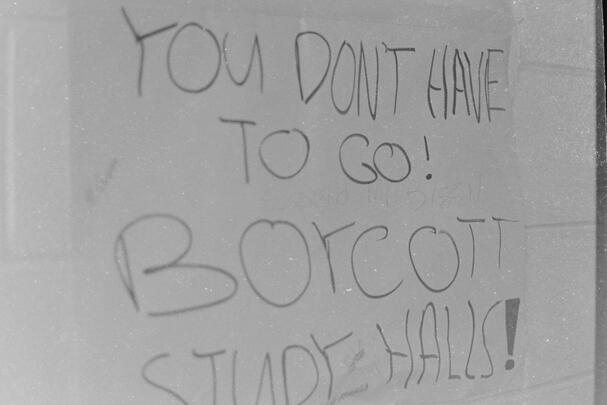 YOU DONT HAVE
TO GO!
BOYCOTT
STUDY HALLS!